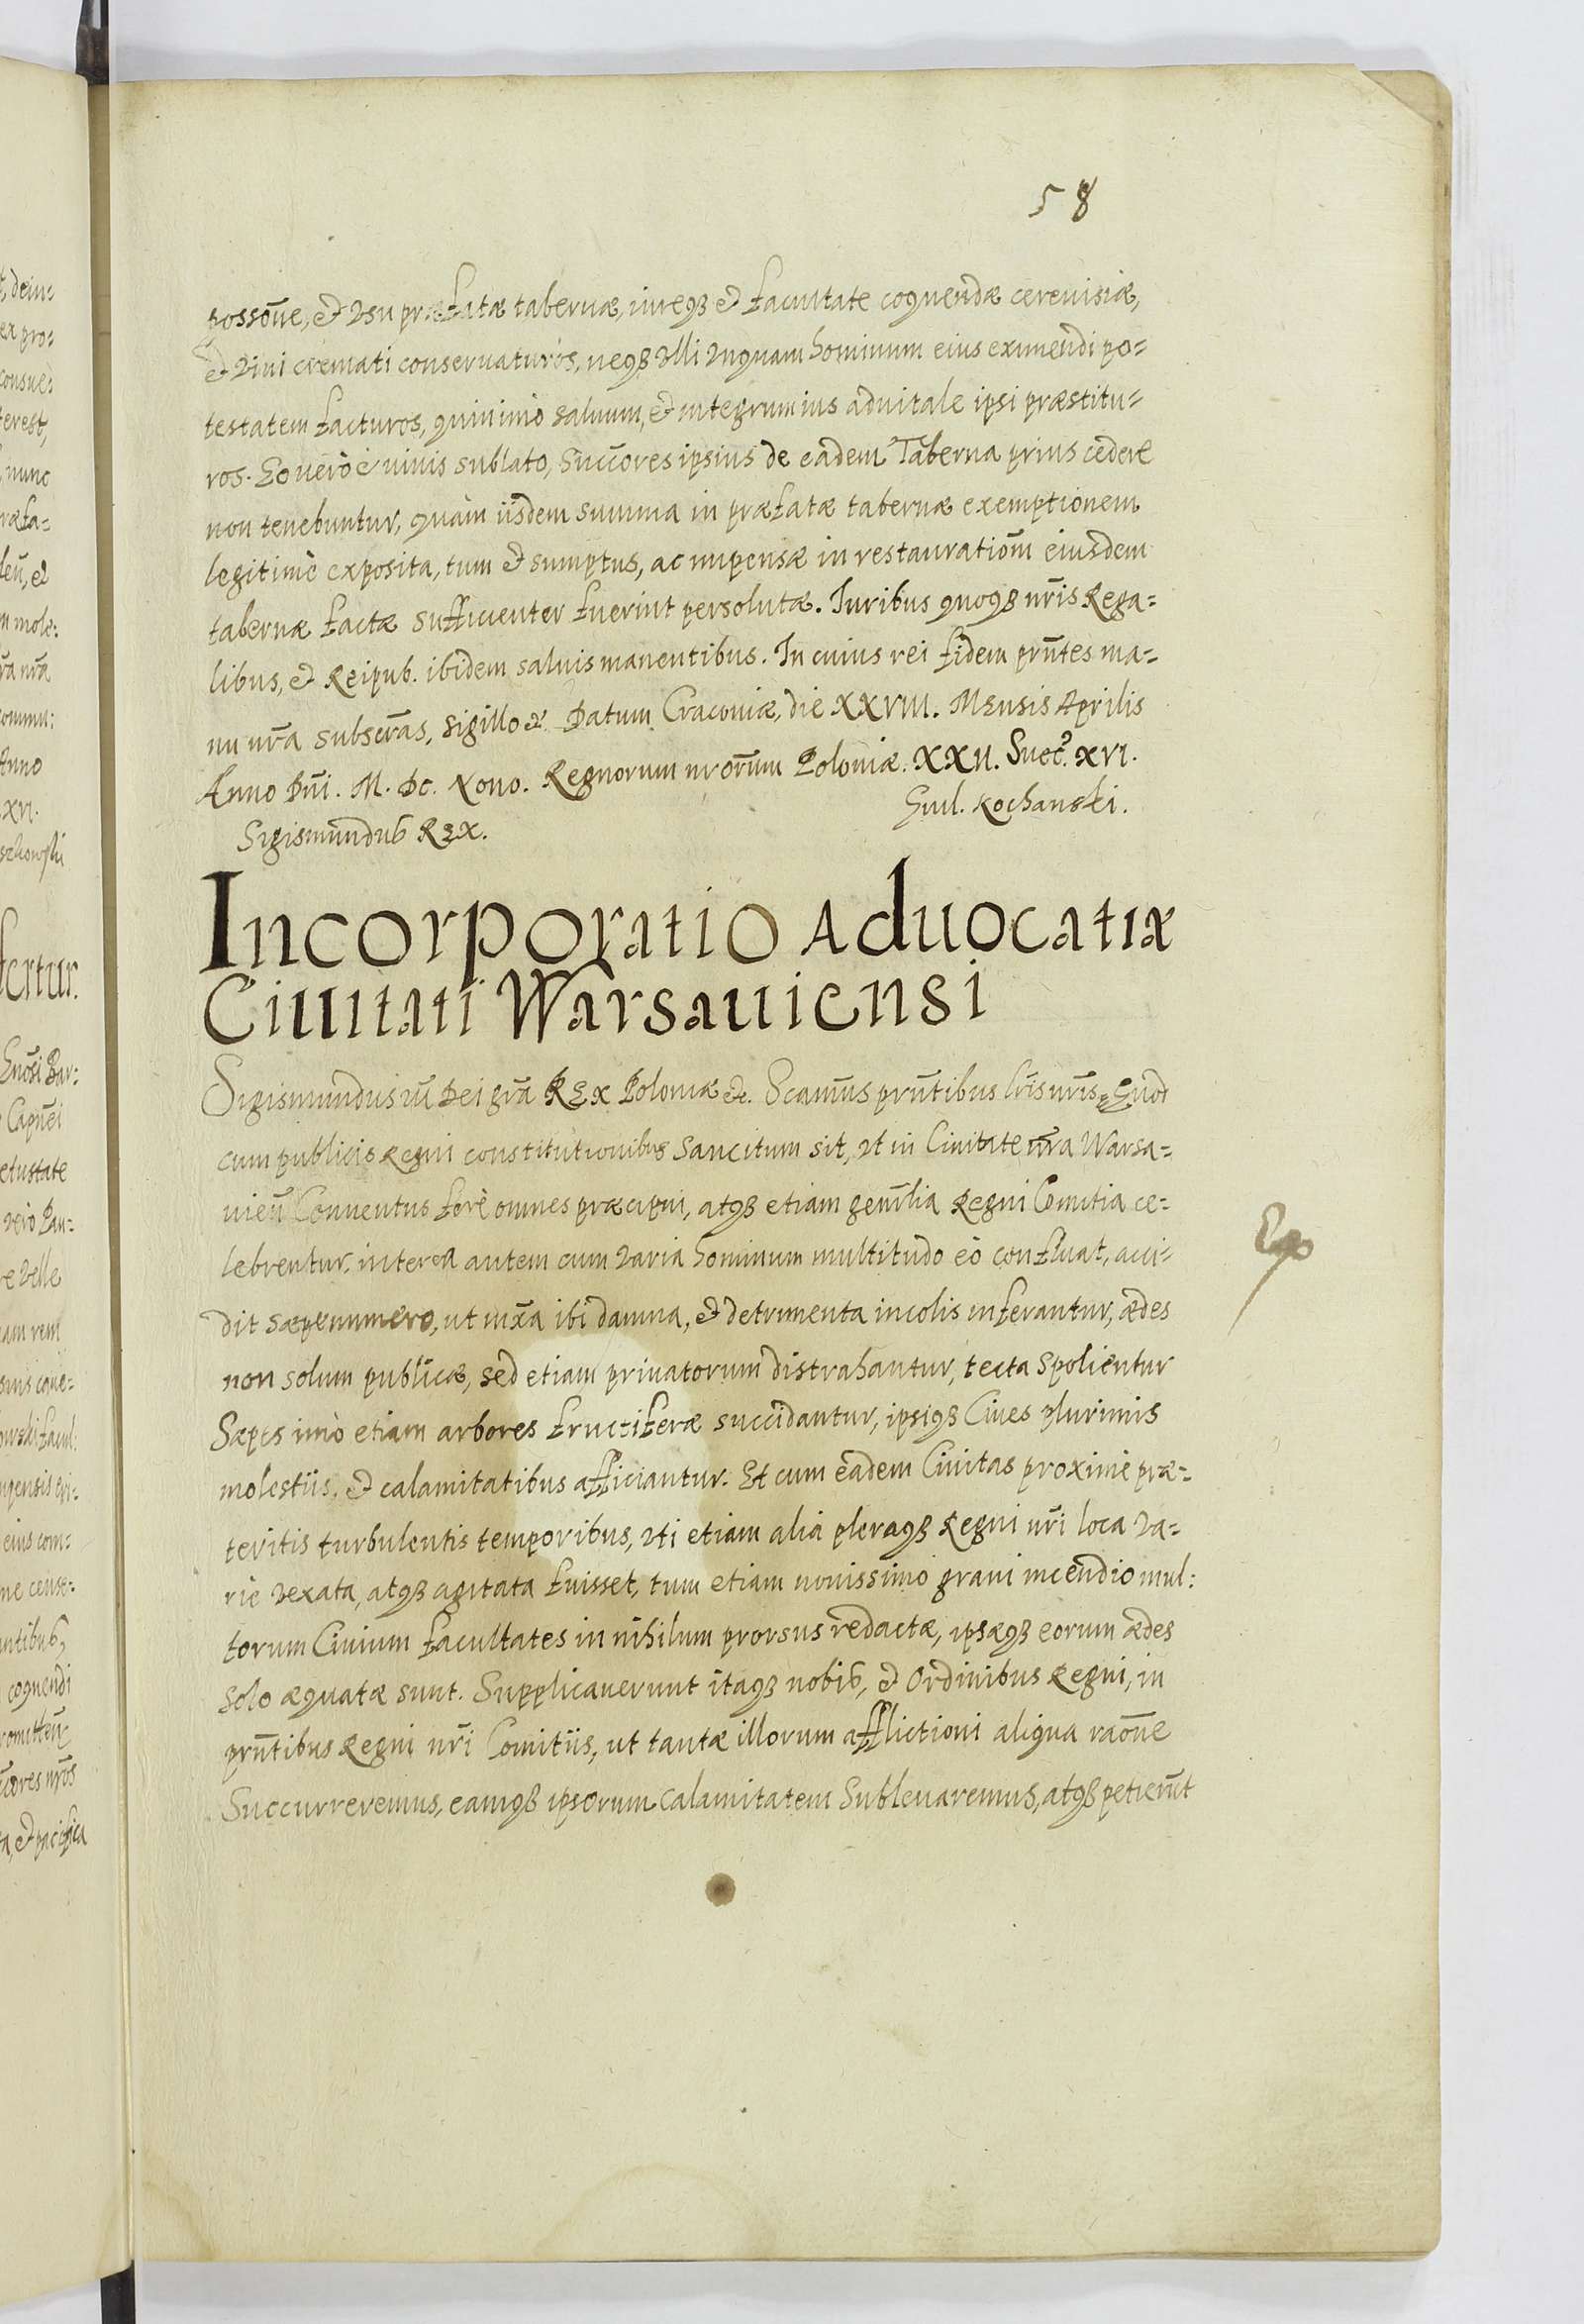 58
possōne, et usu præfatæ tabernæ, iureqꝫ et facultate coquendæ cereuisiæ,
et vini cremati conseruaturos, neqꝫ ulli unquam hominum eius eximendi po-
testatem facturos, quinimò saluum, et integrum ius aduitale ipsi præstitu-
ros. Eo verò è viuis sublato, Succ̄ores ipsius de eadem Taberna prius cedere
non tenebuntur, quàm iisdem summa in præfatæ tabernæ exemptionem
legitimè exposita, tum et sumptus, ac impensæ in restauratiōm eiusdem
tabernæ factæ sufficienter fuerint persolutæ. Iuribus quoqꝫ nr̄is Rega-
libus, et Reipub. ibidem saluis manentibus. In cuius rei fidem prn̄tes ma-
nu nr̄a subscr̄as, sigillo etc Datum Cracouiæ, die XXVIII. Mensis Aprilis
Anno Dn̄i. M. Dc. Nono. Regnorum nrorūm Poloniæ. XXII. Suec. XVI.
Sigismundus REX.
Guil. Kochanski.
Incorporatio Aduocatiæ
Ciuitati Warsauiensi
Sigismundus iii Dei grā REX Poloniæ etc. Scam̄us prn̄tibus lr̄is nr̄is, Quod
cum publicis Regni constitutionibus Sancitum sit, ut in Ciuitate nr̄a Warsa-
uien̄ Conuentus ferè omnes præcipui, atqꝫ etiam genr̄lia Regni Comitia ce-
lebrentur, interea autem cum varia hominum multitudo eò confluat, acci-
dit sæpenumero, ut mx̄a ibi damna, et detrimenta incolis inferantur, ædes
non solum publicæ, sed etiam priuatorum distrahantur, tecta Spolientur
Sæpes imò etiam arbores fructiferæ succidantur, ipsiqꝫ Ciues plurimis
molestiis, et calamitatibus afficiantur. Et cum eadem Ciuitas proximè præ-
teritis turbulentis temporibus, uti etiam alia pleraqꝫ Regni nr̄i loca va-
riè vexata, atqꝫ agitata fuisset, tum etiam nouissimo graui incendio mul:
torum Ciuium facultates in nihilum prorsus redactæ, ipsæqꝫ eorum ædes
Solo æquatæ sunt. Supplicauerunt itaqꝫ nobis, et Ordinibus Regni, in
prn̄tibus Regni nr̄i Comitiis, ut tantæ illorum afflictioni aliqua raōne
Succurreremus, eamqꝫ ipsorum Calamitatem Subleuaremus, atqꝫ petierūnt